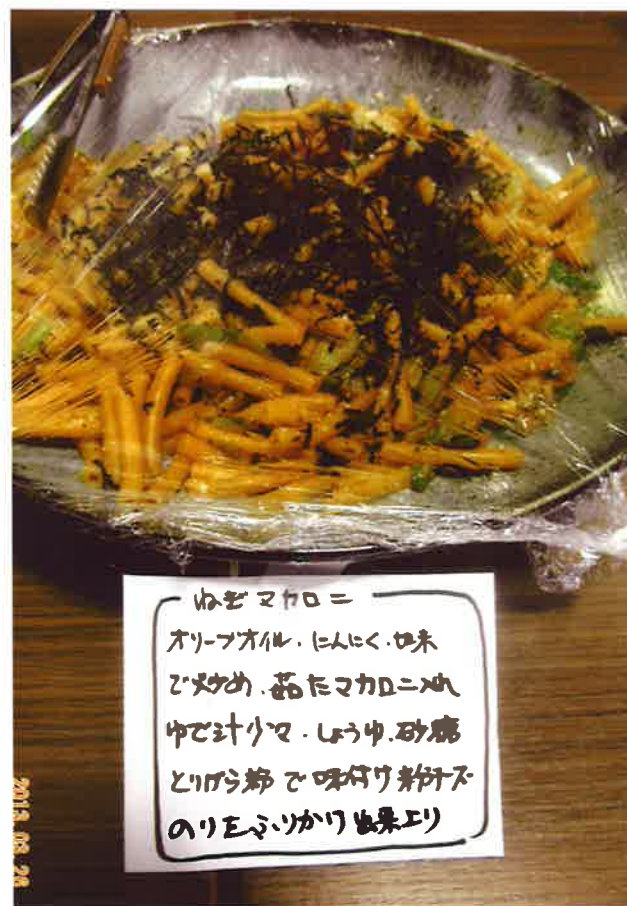 ねぎマカロニ
オリーブオイル・にんにく・
で炒め、茹たマカロニ入れ
ゆで汁少々・しょうゆ、砂糖
とりがら粉で味付け粉チーズ
のりをふりかけ出来上り
2013 03 26